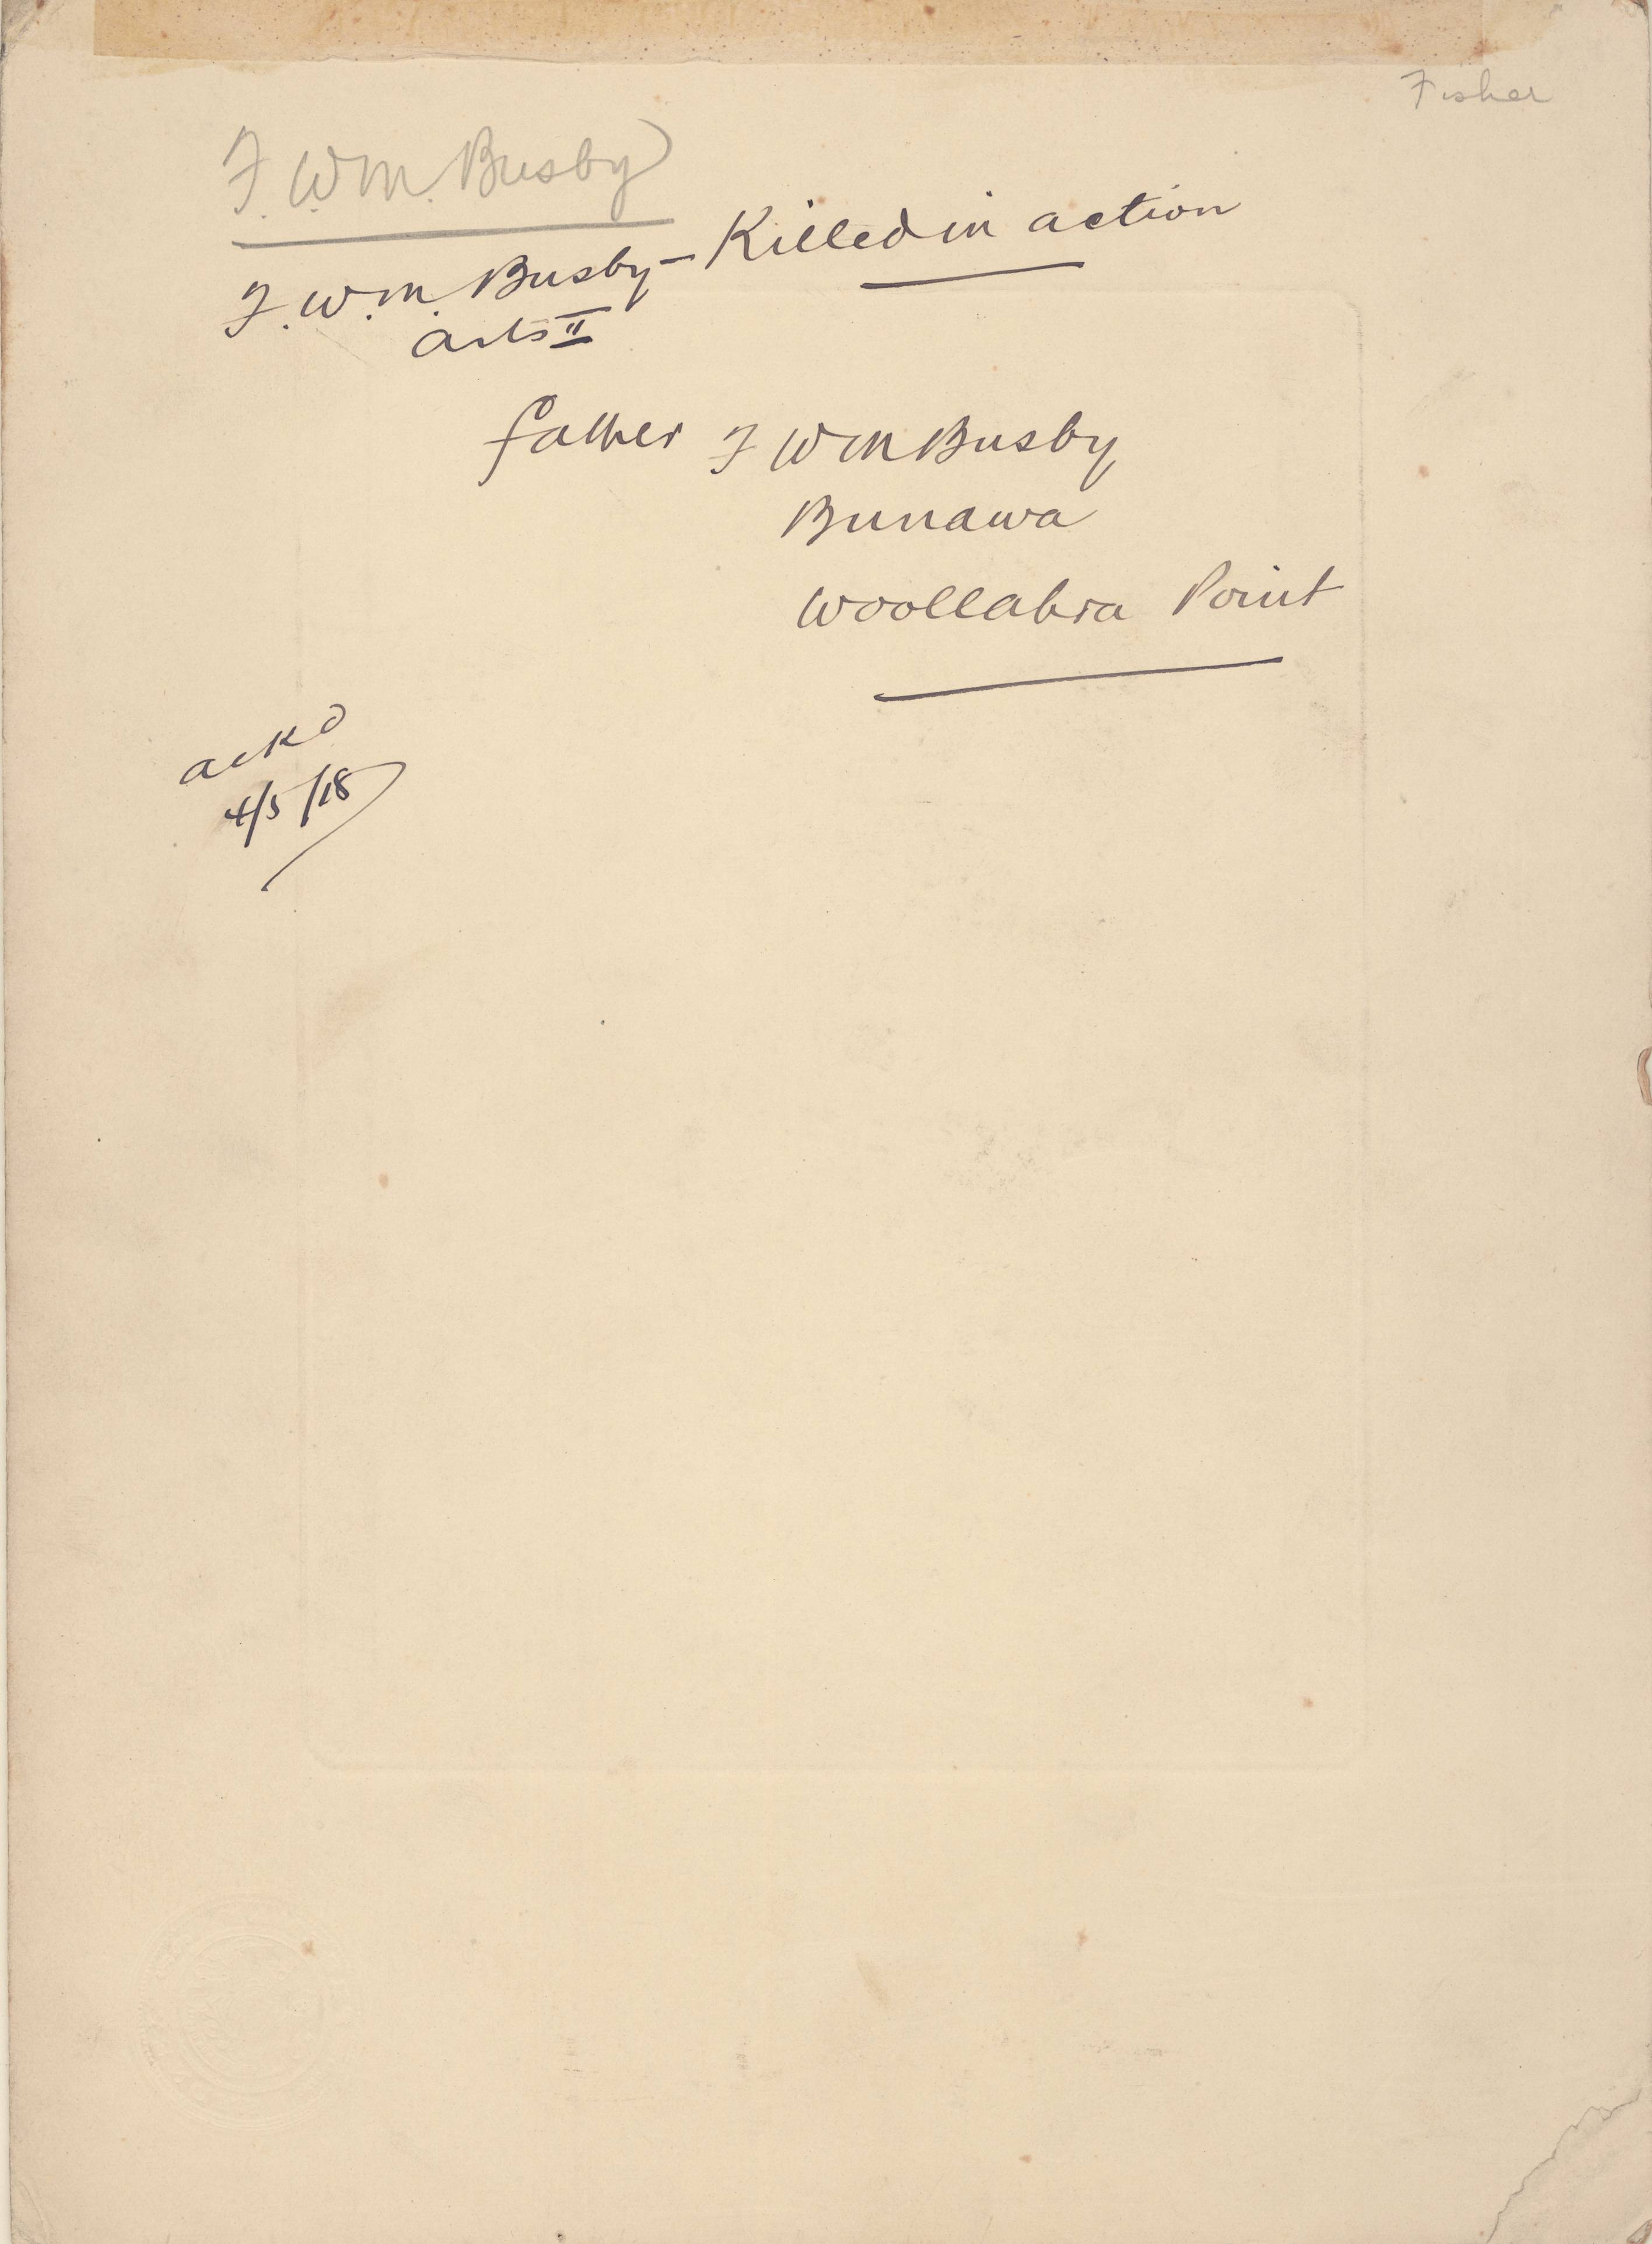 Fisher
F. W. M. Busby
F. W. M. Busby - Killed in action
Arts II
father F W M Busby
Bunawa
Woollahra Point
ackd
4/5/18